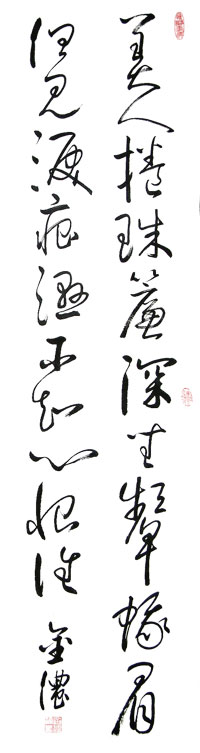 美人捲珠簾深坐顰蛾眉
但見淚痕濕不知心恨誰
金